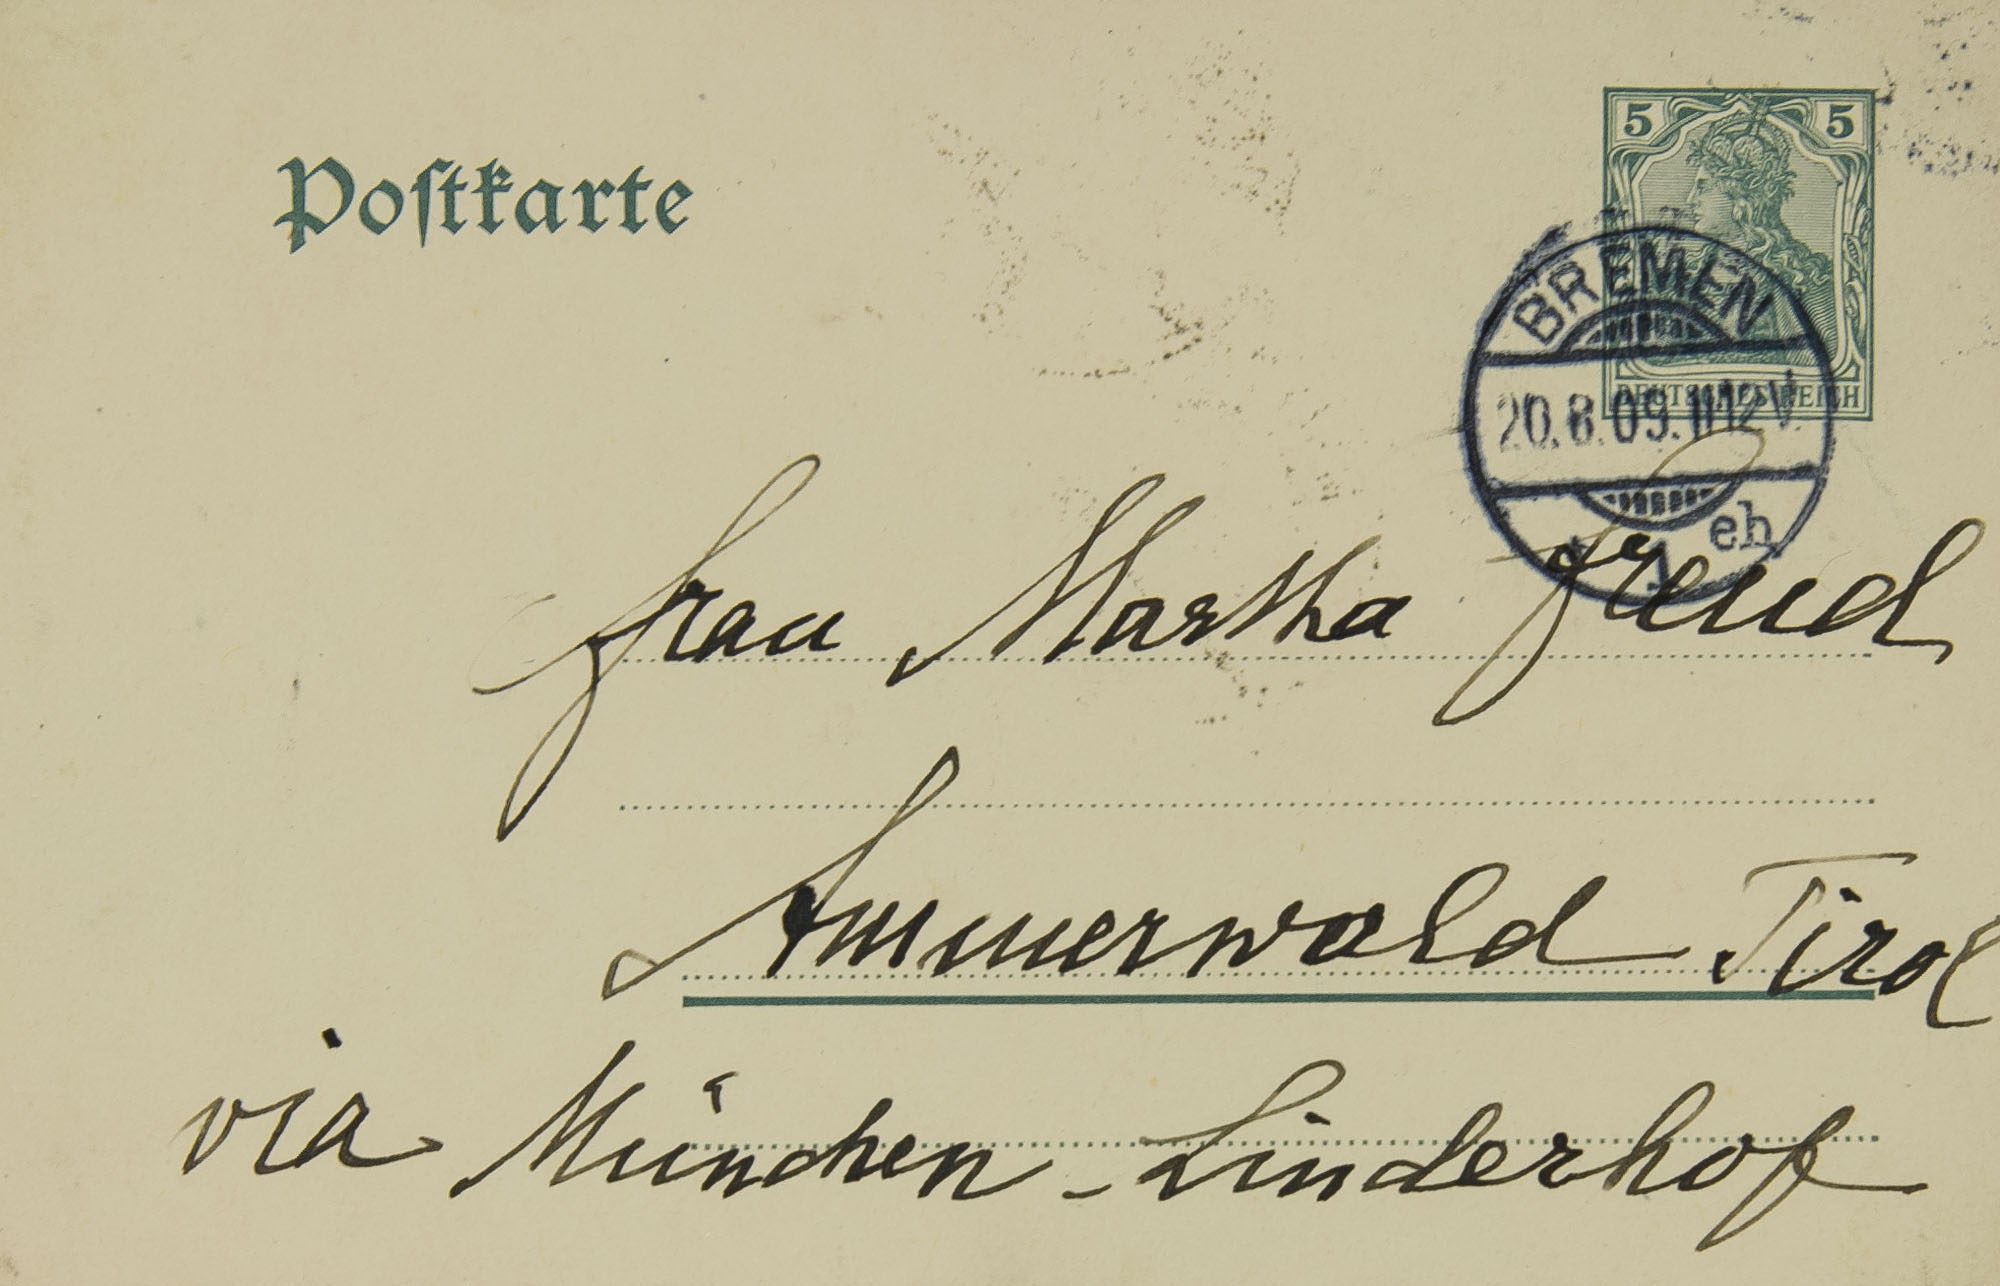 Postkarte
5 5
DEUTSCHES REICH
BREMEN
20.8.09.11-12V.
1 eh
Frau Martha Freud
Ammerwald Tirol
via München - Linderhof